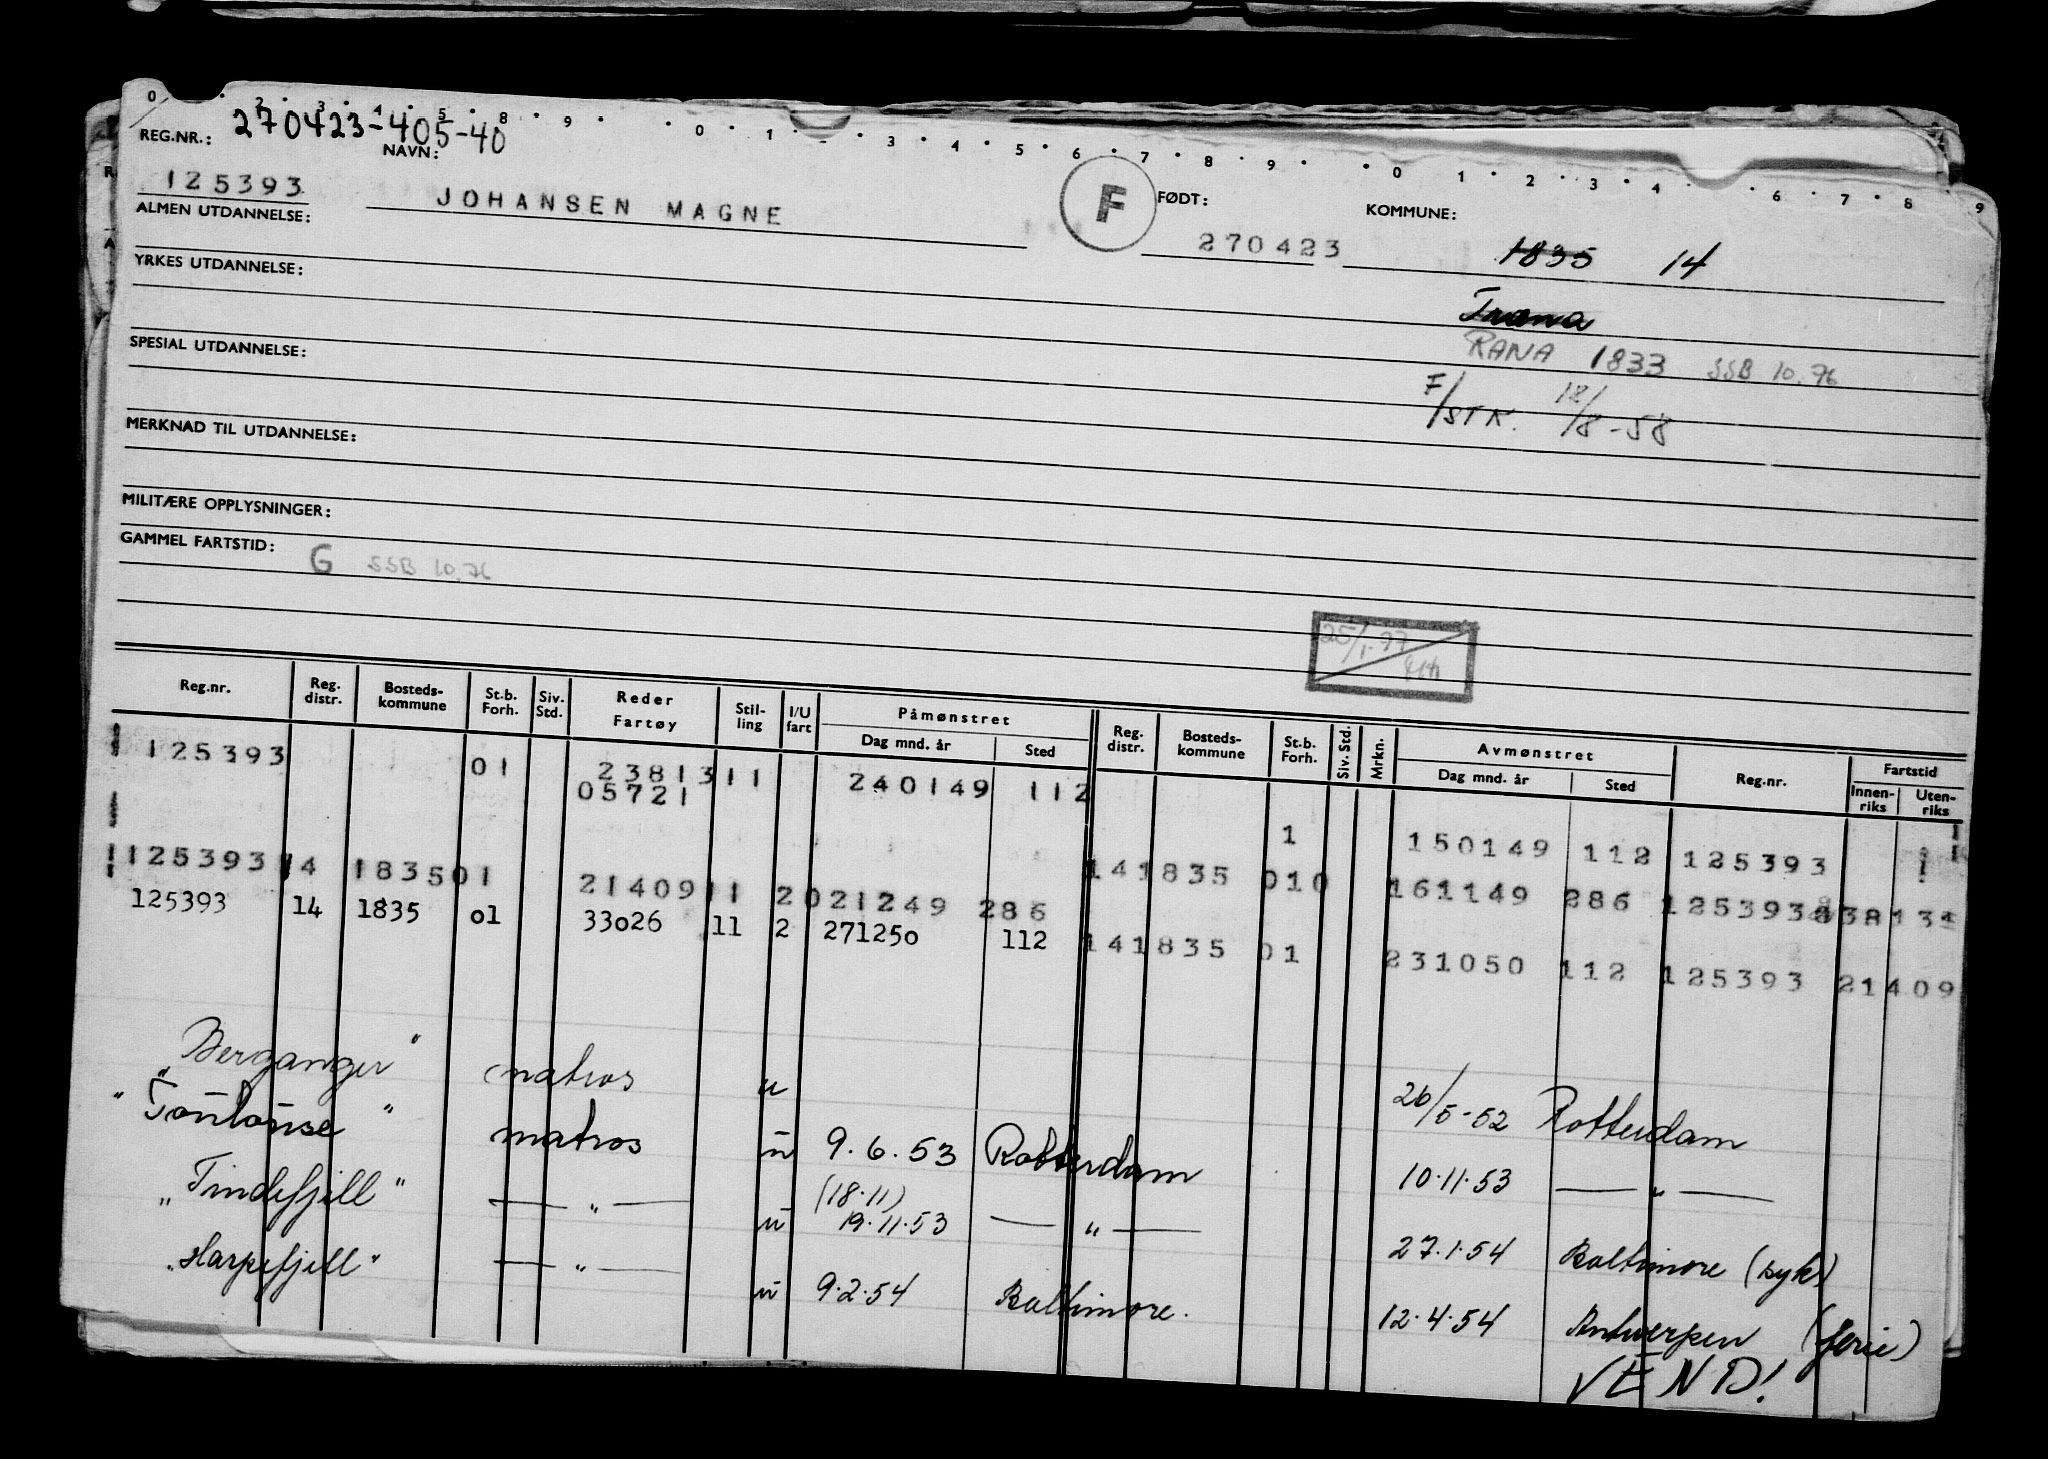 0 2 3 4 5 8 9 0 1 3 4 5 6 7 8 9 0 1 2 3 4 6 7 8 9
REG.NR.: 270423-405-40
NAVN:
125393 JOHANSEN MAGNE F FØDT: 270423 KOMMUNE: 1835 14
ALMEN UTDANNELSE:
Træna
YRKES UTDANNELSE:
RANA 1833 SSB 10.76
SPESIAL UTDANNELSE:
F/STK. 12/8-58
MERKNAD TIL UTDANNELSE:
MILITÆRE OPPLYSNINGER:
GAMMEL FARTSTID: G SSB 10.76
25/1-77
Reg.nr. Reg. distr. Bosteds-kommune St.b. Forh. Siv. Std. Reder Fartøy Stil-ling I/U fart Påmønstret Dag mnd. år Sted Reg. distr. Bosteds-kommune St.b. Forh. Siv. Std. Mrkn. Avmønstret Dag mnd. år Sted Reg.nr. Fartstid Innen-riks Uten-riks
125393 01 23813 11 240149 112
05721
1 150149 112 125393
125393 14 1835 01 21409 11 2 021249 286 14 1835 010 161149 286 125393
125393 14 1835 01 33026 11 2 271250 112 14 1835 01 231050 112 125393 21409
"Berganger" matros u 26/5-52 Rotterdam
"Toulouse" matros u 9.6.53 Rotterdam 10.11.53 — " —
"Tindefjell" — " — u (18.11) 19.11.53 — " — 27.1.54 Baltimore (syk)
"Harpefjell" — " — u 9.2.54 Baltimore. 12.4.54 Antwerpen (ferie)
VEND!